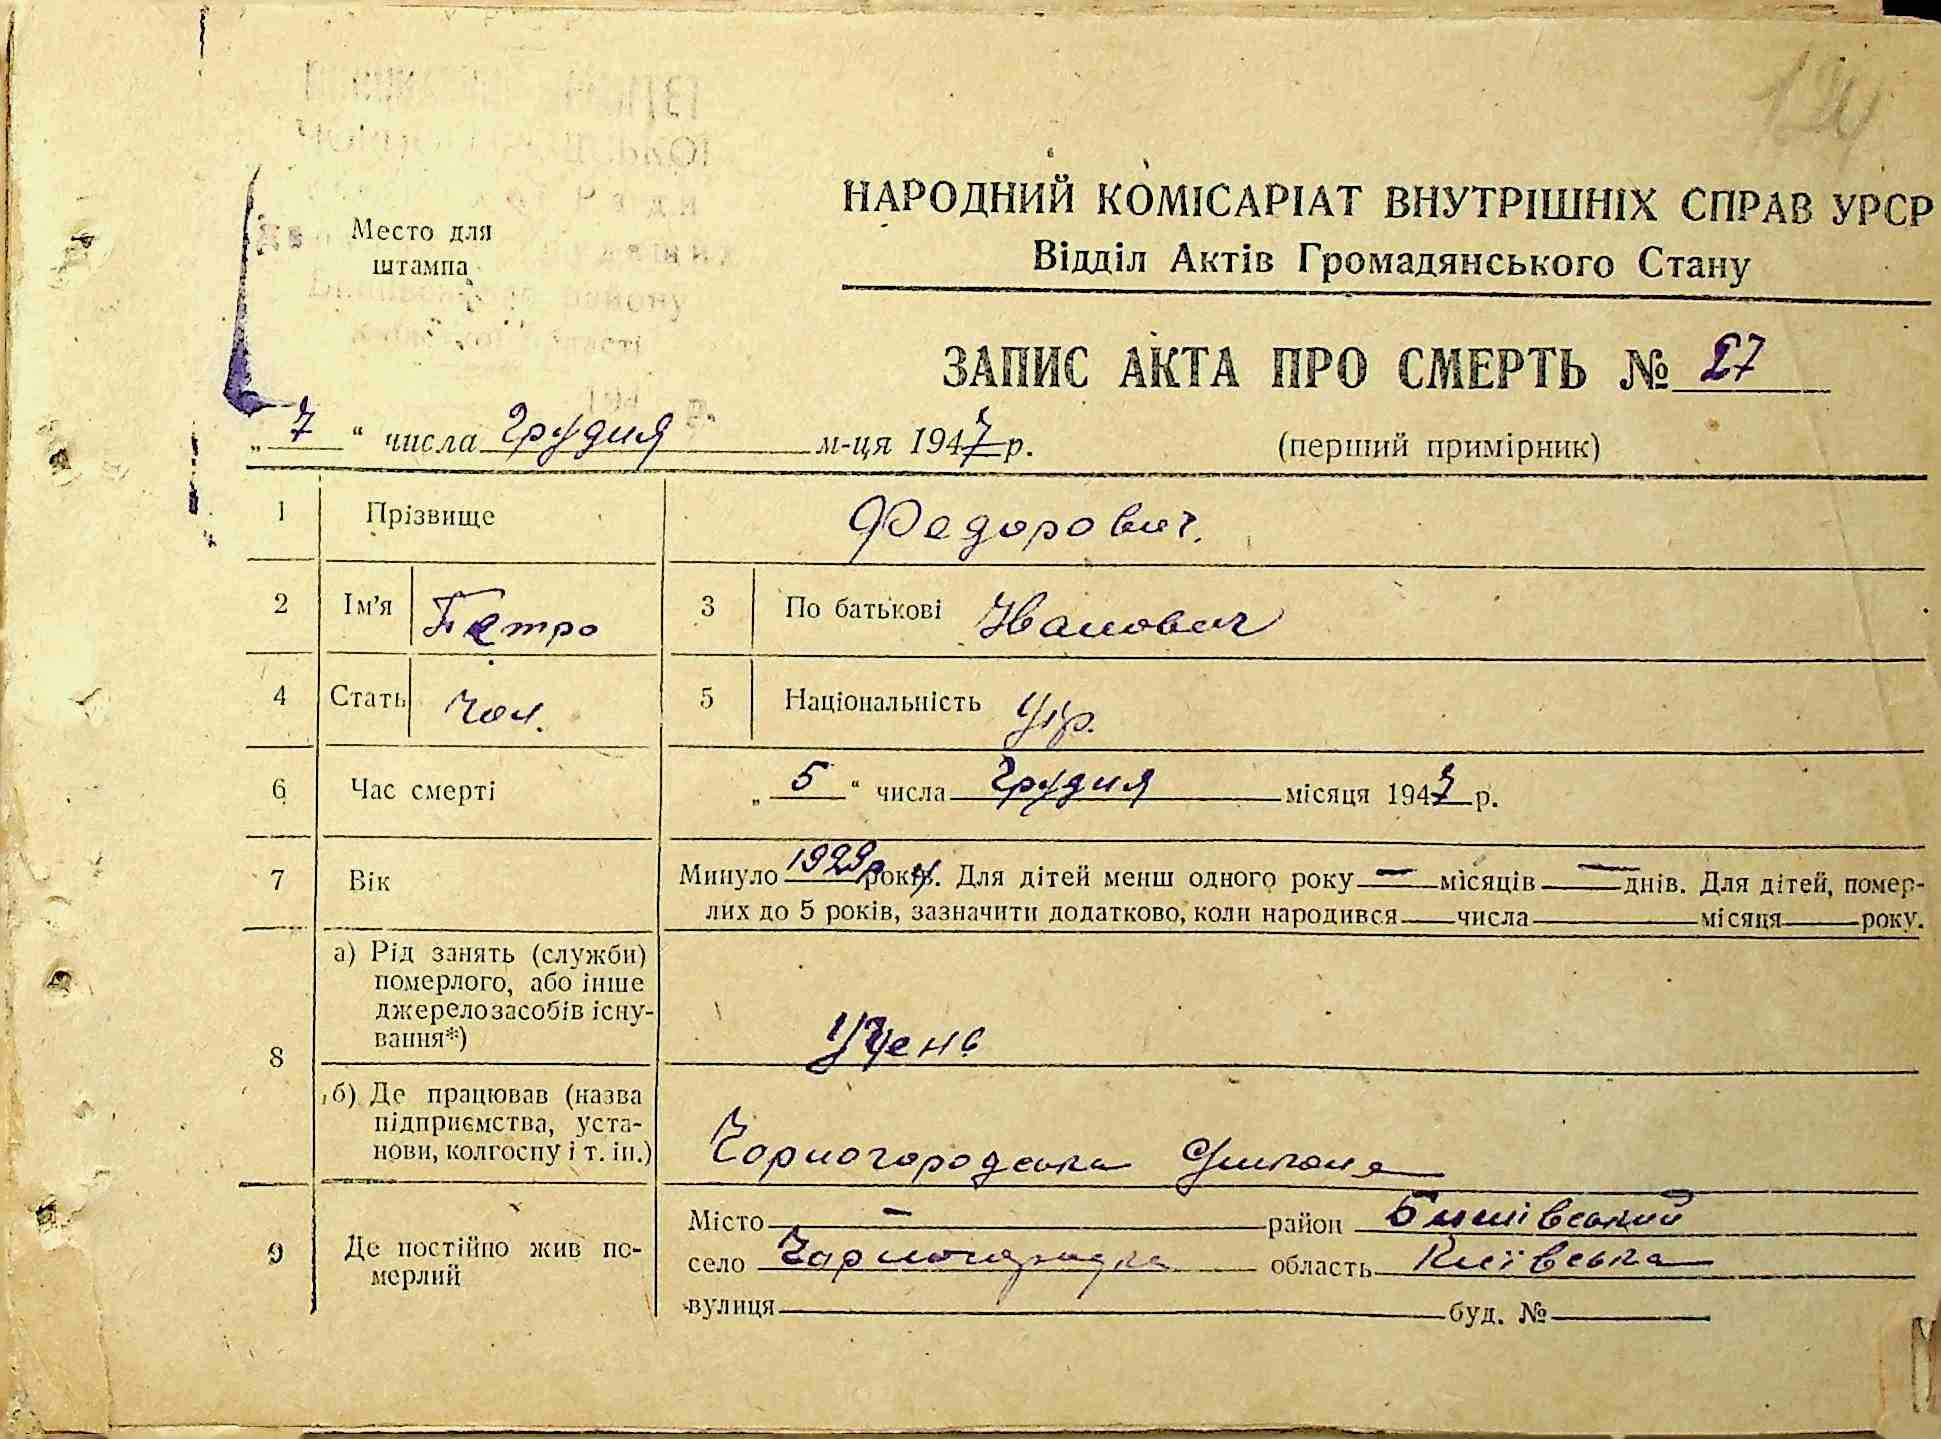 НАРОДНИЙ КОМІСАРІАТ ВНУТРІШНІХ СПРАВ УРСР
Відділ Актів Громадянського Стану
Место для
штампа
ЗАПИС АКТА ПРО СМЕРТЬ № 27
„ 7 “ числа Грудня м-ця 1947 р. (перший примірник)
1 Прізвище Федорович.
2 Ім'я Петро 3 По батькові Иванович
4 Стать чол. 5 Національність Укр.
6 Час смерті „ 5 “ числа Грудня місяця 1947 р.
7 Вік Минуло 1929р років. Для дітей менш одного року — місяців — днів. Для дітей, помер-
лих до 5 років, зазначити додатково, коли народився числа місяця року.
8 а) Рід занять (служби)
померлого, або інше
джерело засобів існу-
вання*)
Учень
б) Де працював (назва
підприємства, уста-
нови, колгоспу і т. ін.)
Чорногородська
9 Де постійно жив по-
мерлий
Місто — район Бишівський
село Чорногородка область Київська
вулиця буд. №